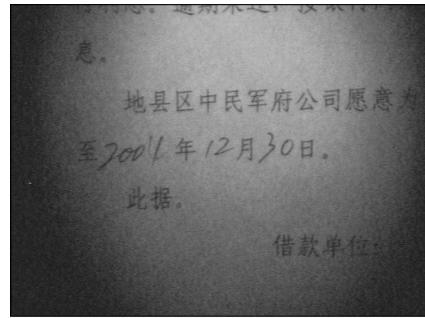 息。
地县区中民军府公司愿意为
至2004年12月30日。
此据。
借款单位: